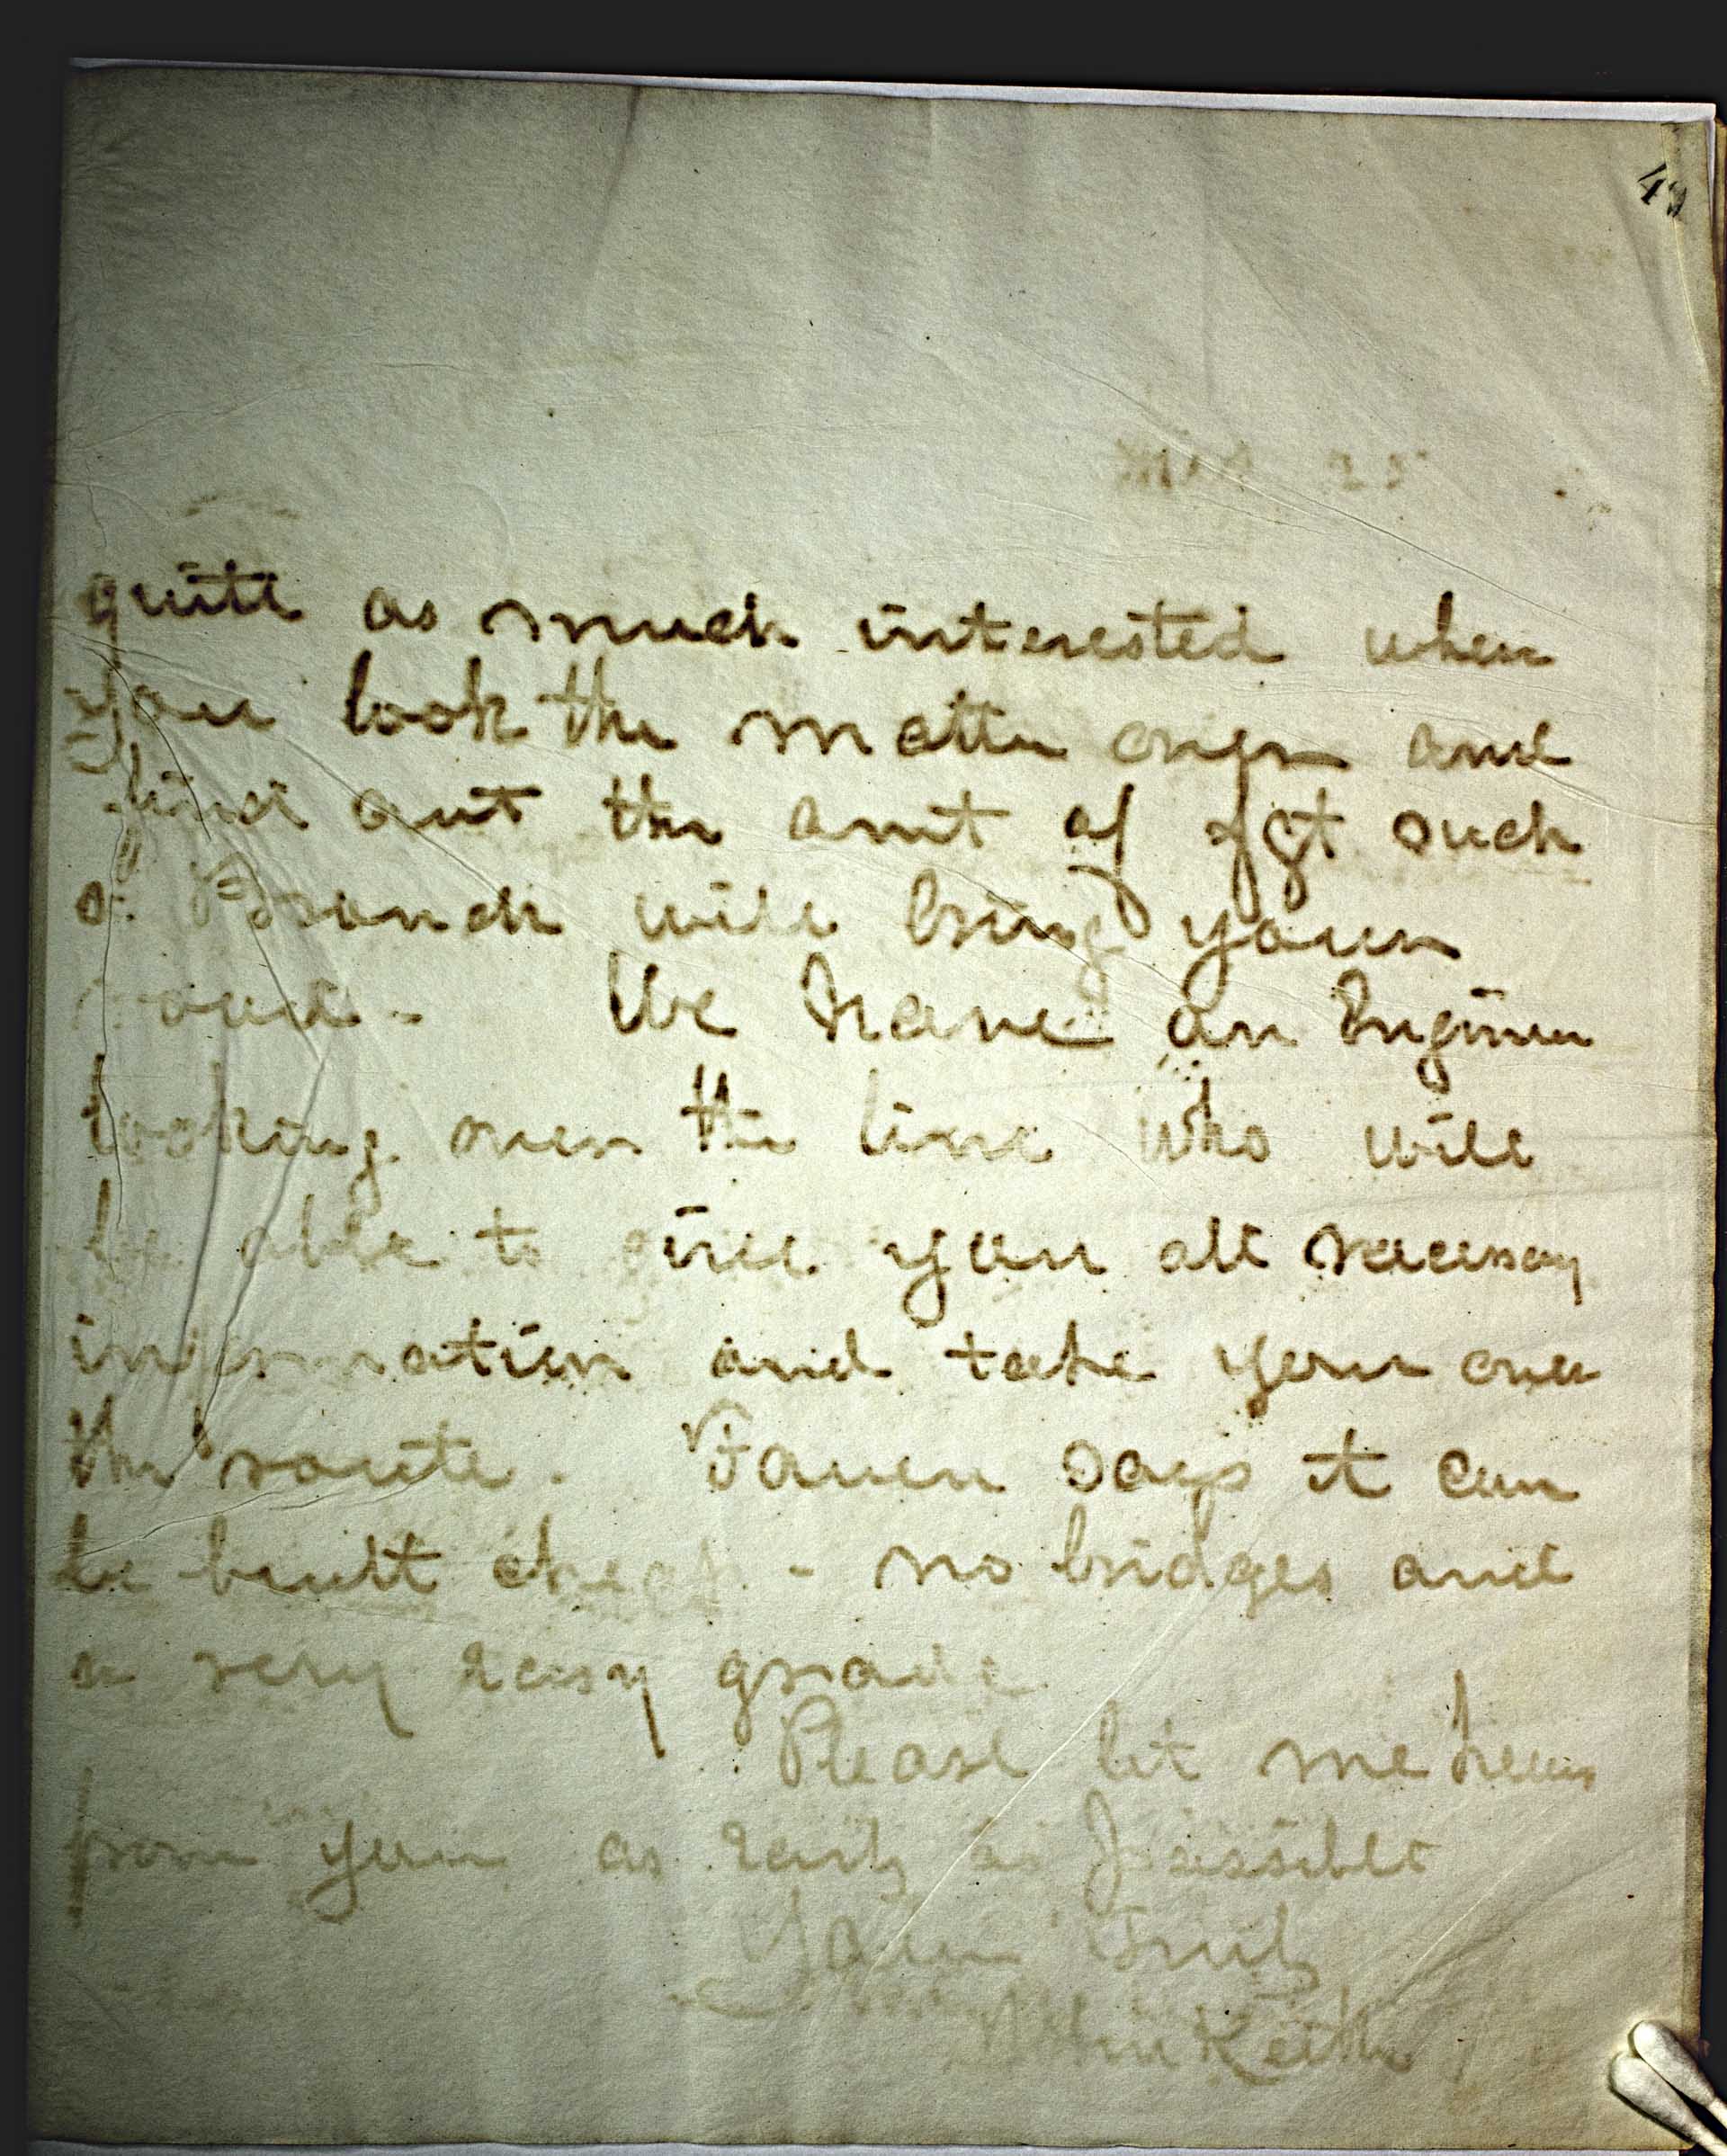 49
quite as much interested when
you look the matter over and
find out the amt of fgt such
a Branch will bring your
road - We have an Engineer
looking over the line who will
be able to give you all necessary
information and take you over
the route. says it can
be built cheap - no bridges and
a very easy grade
Please let me hear
from you as early as possible
Yours Truly
Keith